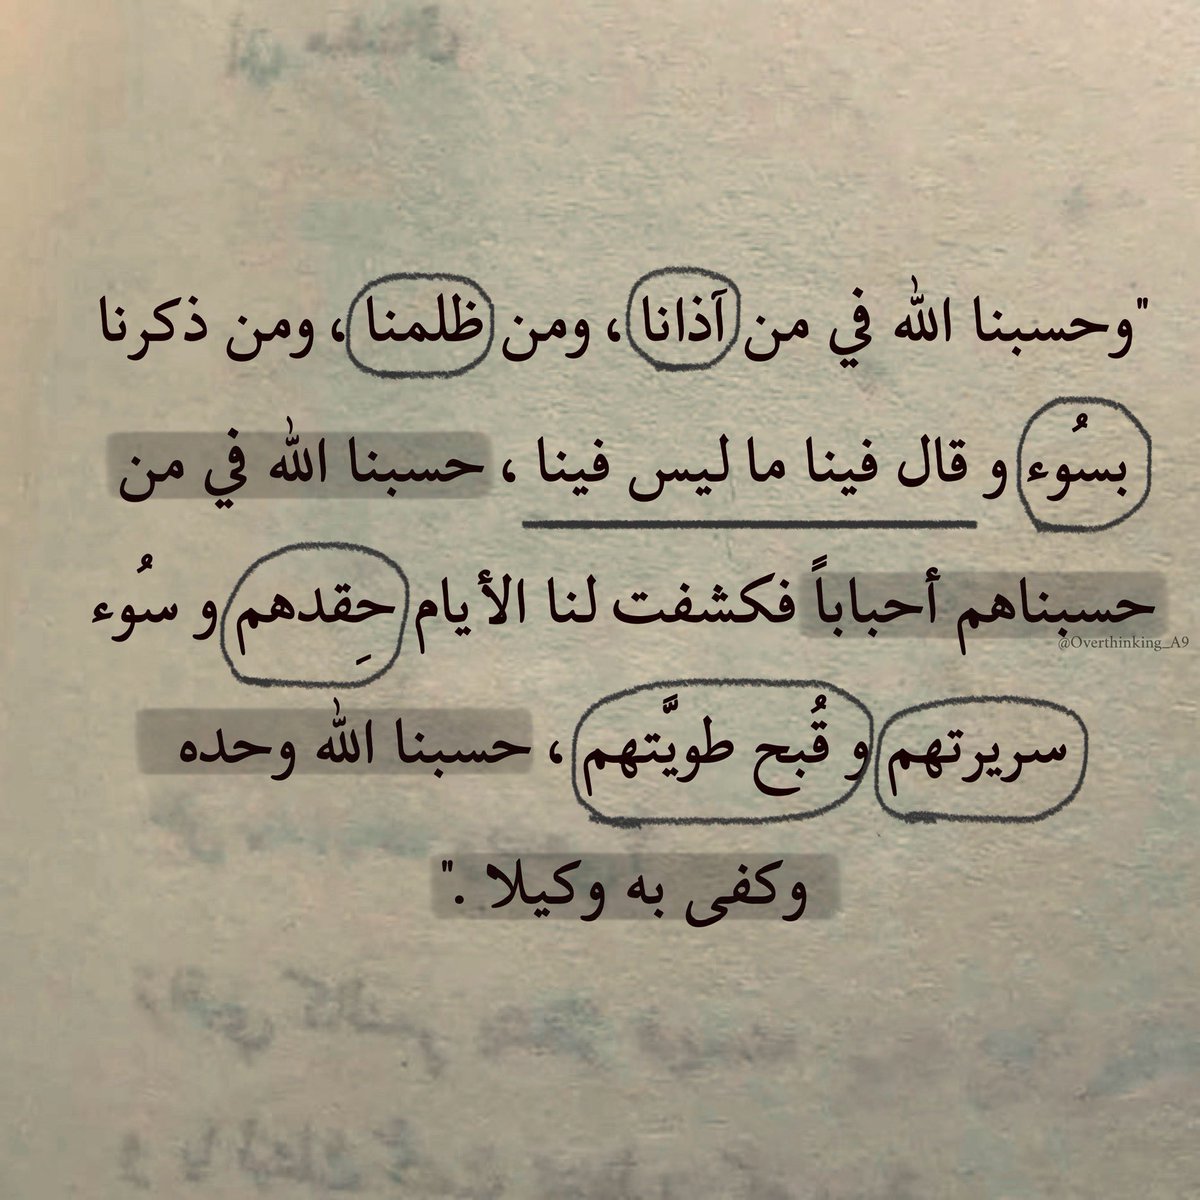 "وحسبنا الله في من آذانا ، ومن ظلمنا ، ومن ذكرنا
بسُوء و قال فينا ما ليس فينا ، حسبنا الله في من
حسبناهم أحباباً فكشفت لنا الأيام حِقدهم و سُوء
@Overthinking_A9
سريرتهم و قُبح طويَّتهم ، حسبنا الله وحده
وكفى به وكيلا ."